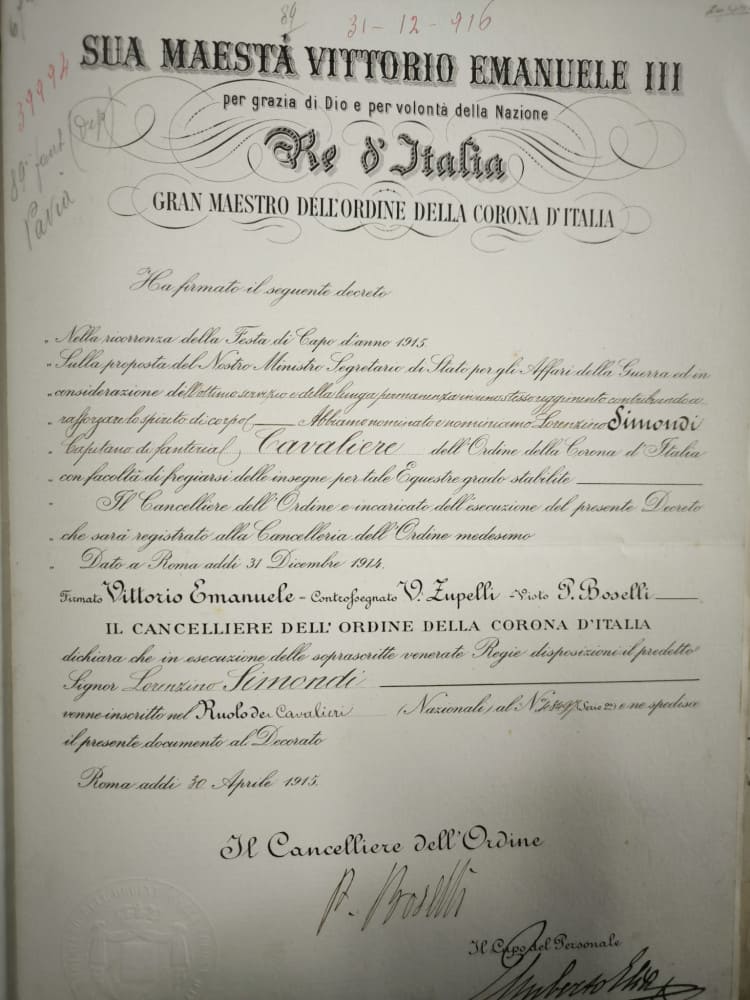 89
31-12-916
39994
89° fant (Dep)
Pavia
SUA MAESTÀ VITTORIO EMANUELE III
per grazia di Dio e per volontà della Nazione
Re d'Italia
GRAN MAESTRO DELL'ORDINE DELLA CORONA D'ITALIA
Ha firmato il seguente decreto
„ Nella ricorrenza della Festa di Capo d'anno 1915
„ Sulla proposta del Nostro Ministro Segretario di Stato per gli Affari della Guerra ed in
„ considerazione dell'ottimo servizio e della lunga permanenza in uno stesso reggimento contribuendo a
„ rafforzare lo spirito di corpo Abbiamo nominato e nominiamo Lorenzino Simondi
„ Capitano di fanteria Cavaliere dell'Ordine della Corona d'Italia
„ con facoltà di fregiarsi delle insegne per tale Equestre grado stabilite
„ Il Cancelliere dell'Ordine è incaricato dell'esecuzione del presente Decreto
„ che sarà registrato alla Cancelleria dell'Ordine medesimo
„ Dato a Roma addì 31 Dicembre 1914.
Firmato Vittorio Emanuele - Controssegnato V. Zupelli - Visto P. Boselli
IL CANCELLIERE DELL'ORDINE DELLA CORONA D'ITALIA
dichiara che in esecuzione delle soprascritte venerate Regie disposizioni il predetto
Signor Lorenzino Simondi
venne inscritto nel Ruolo dei Cavalieri (Nazionali) al N. Serie 2ª) e ne spedisce
il presente documento al Decorato
Roma addì 30 Aprile 1915.
Il Cancelliere dell'Ordine
P. Boselli
Il Capo del Personale
Umberto